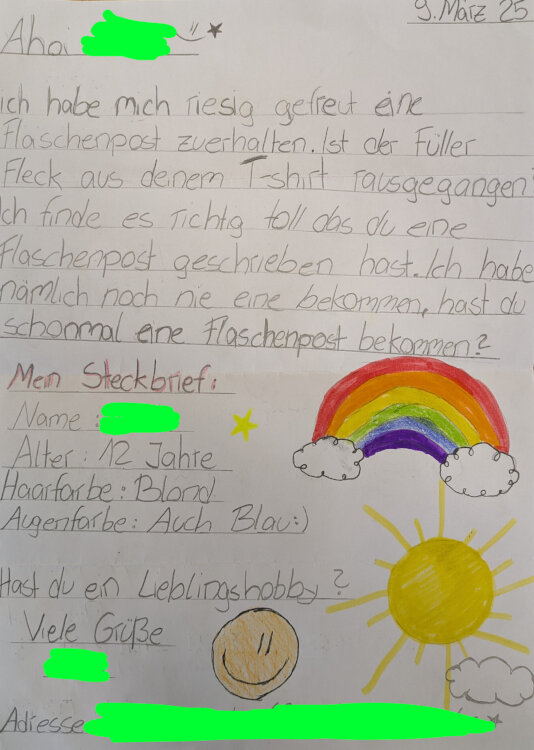 9. März 25
Ahoi
ich habe mich riesig gefreut eine
Flaschenpost zuerhalten. Ist der Füller
Fleck aus deinem T-shirt rausgegangen?
Ich finde es richtig toll das du eine
Flaschenpost geschrieben hast. Ich habe
nämlich noch nie eine bekommen, hast du
schonmal eine Flaschenpost bekommen?
Mein Steckbrief:
Name :
Alter: 12 Jahre
Haarfarbe: Blond
Augenfarbe: Auch Blau:)
Hast du ein Lieblingshobby?
Viele Grüße
Adresse